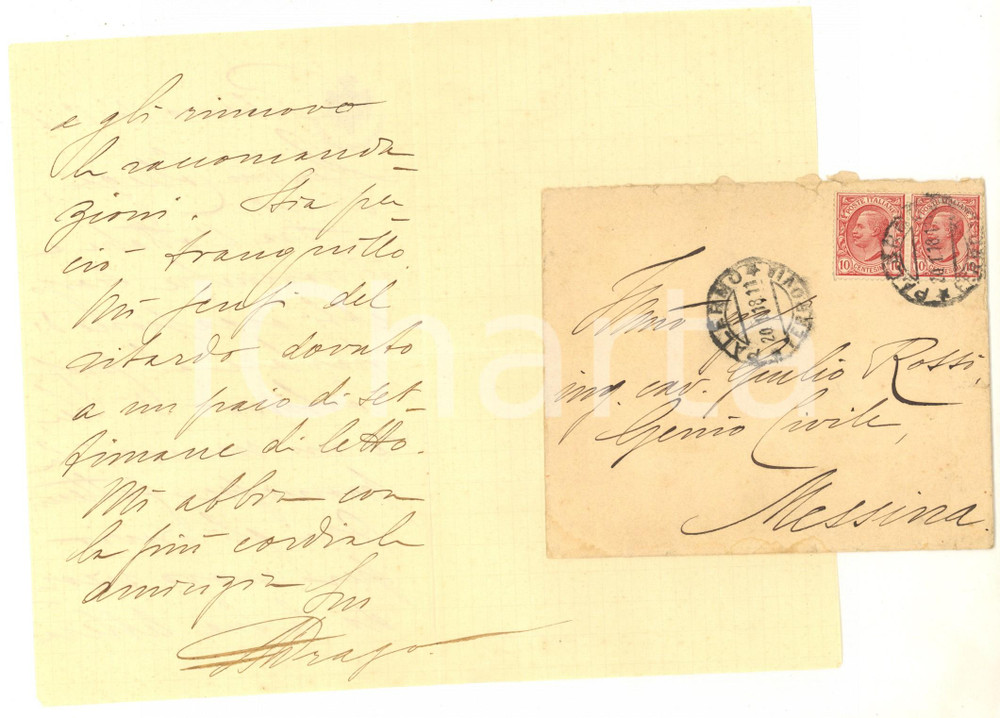 e gli rinnovo
le raccomanda-
zioni. Stia per-
ciò tranquillo.
Mi scusi del
ritardo dovuto
a un paio di set-
timane di letto.
Mi abbia con
la più cordiale
amicizia
Suo
Drago.
POSTE ITALIANE POSTE ITALIANE
10 CENTESIMI 10
PALERMO
Illmo
ing. cav. Giulio Rossi,
Genio Civile,
Messina.
iCharta